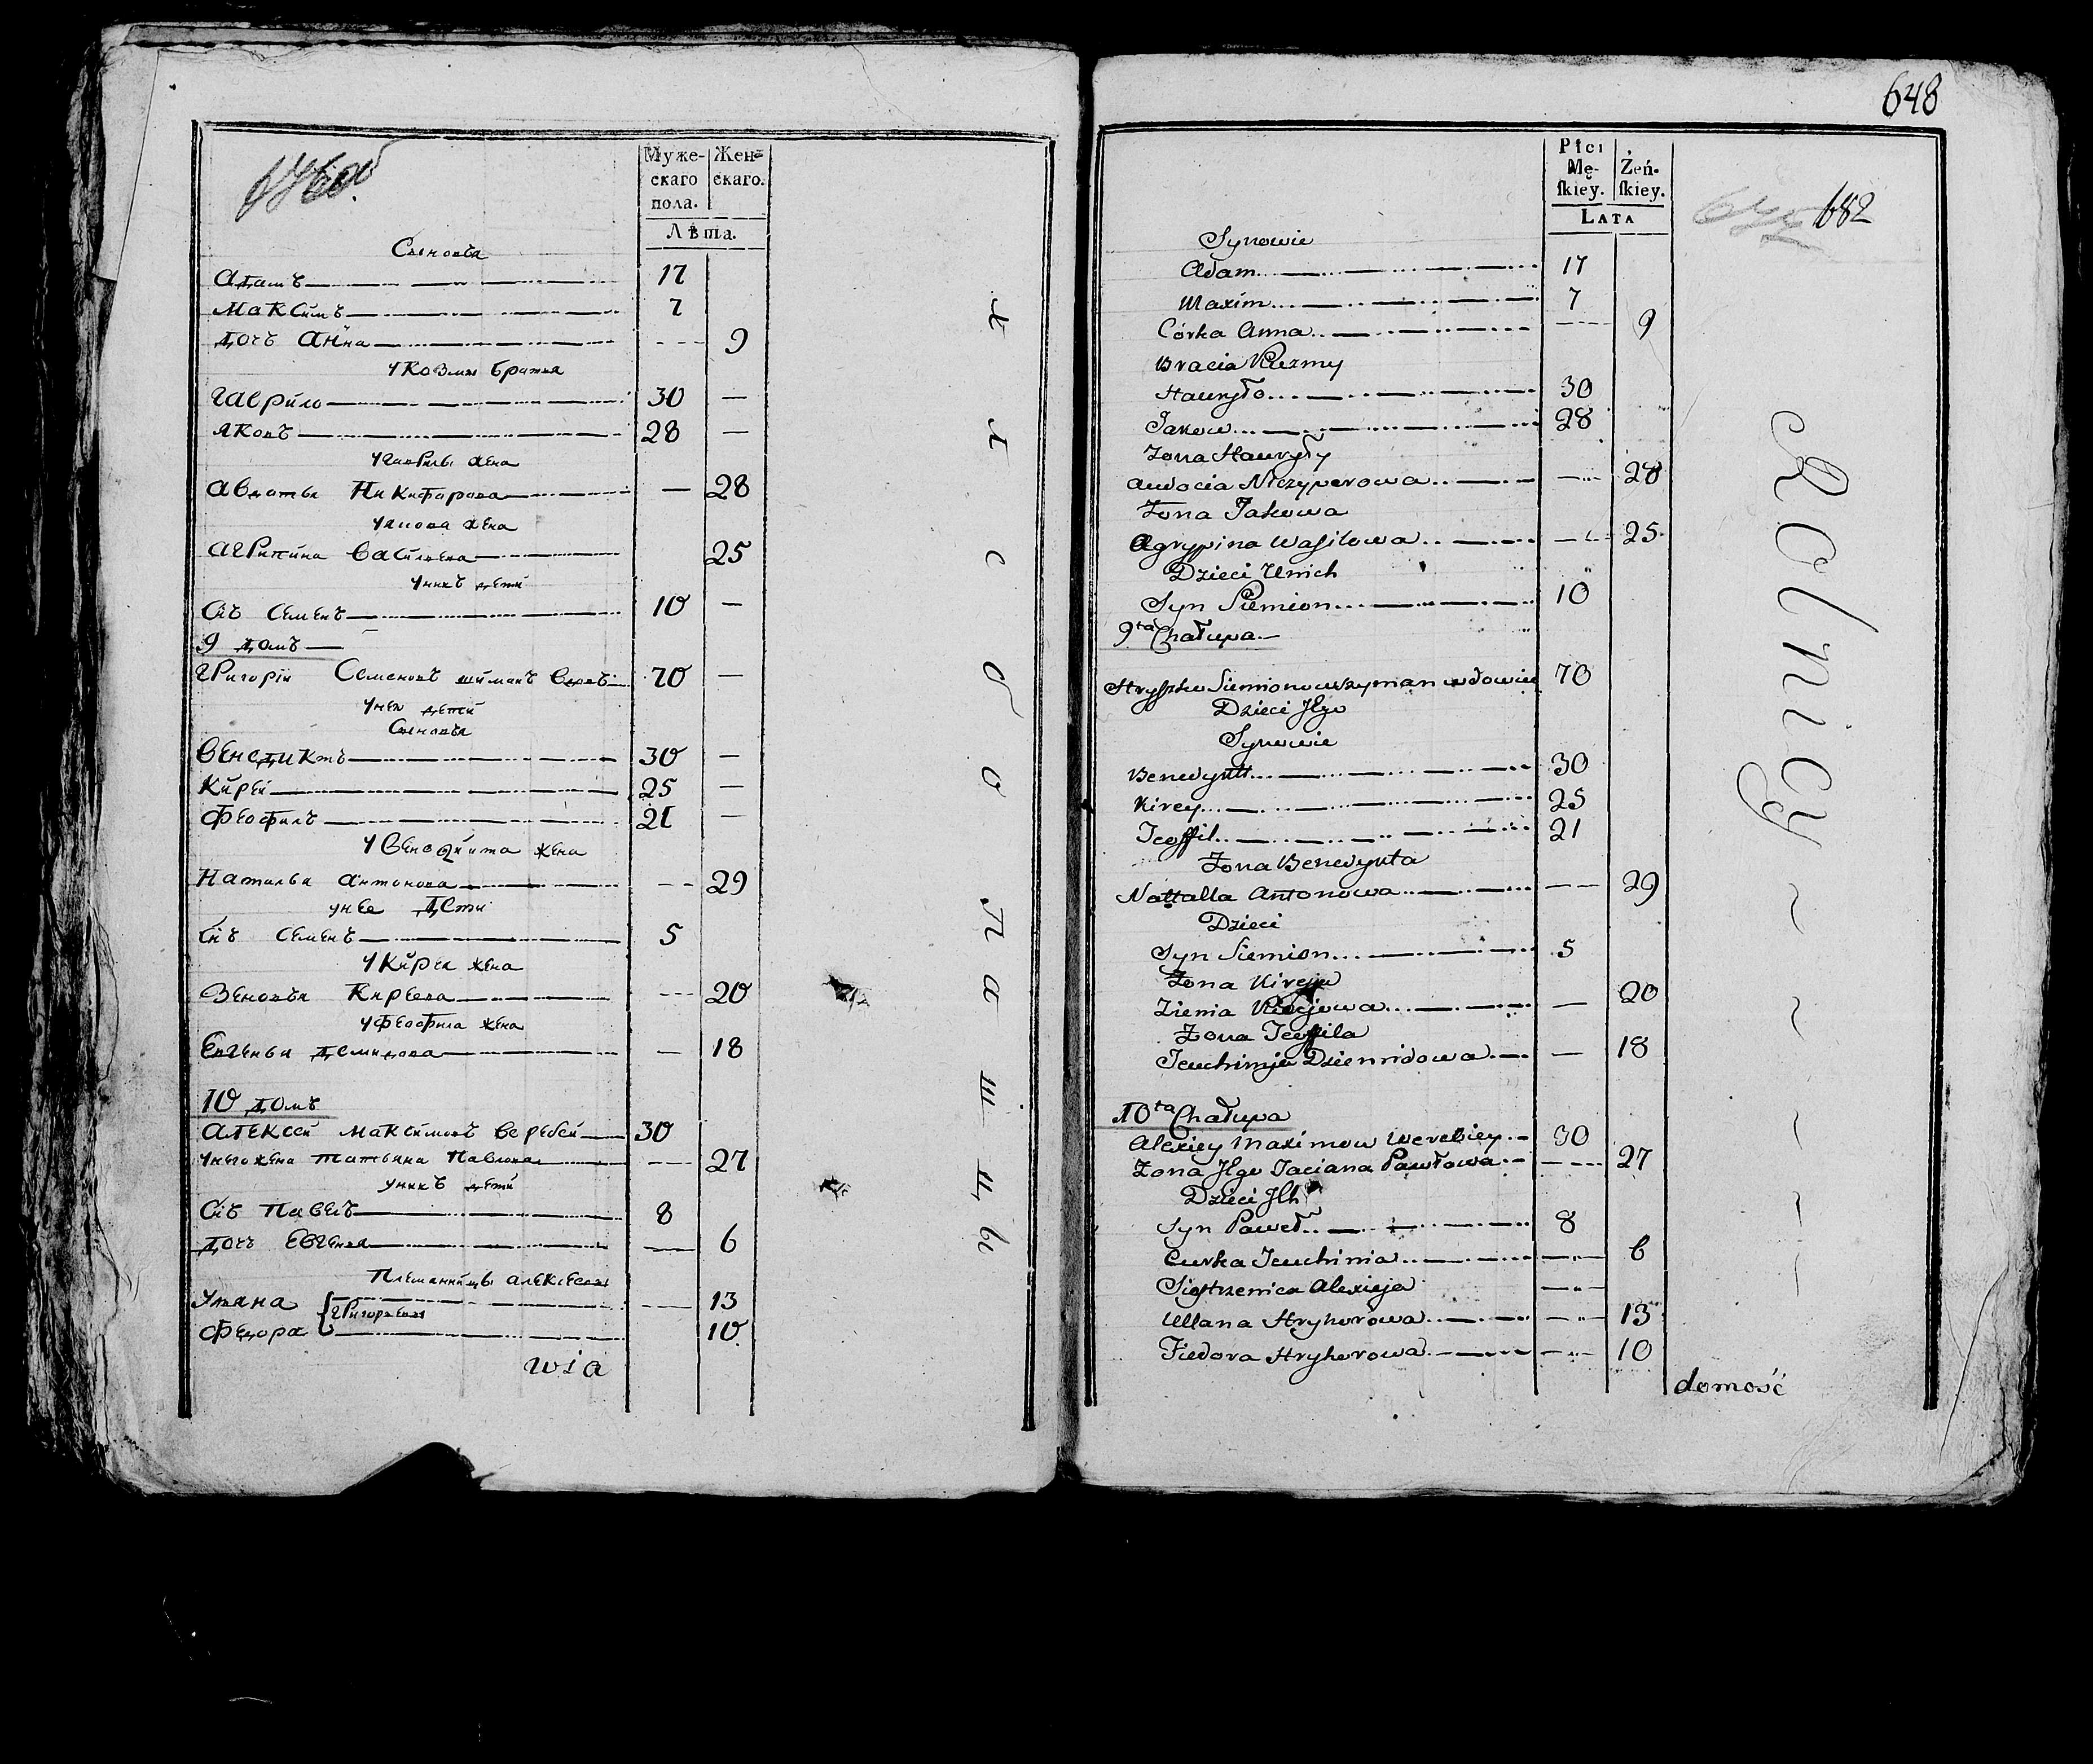 Муже-
скаго
пола.
Жен=
скаго.
Лѣта.
Сыновья
Адамъ 17
Максимъ 7
дочъ Анна 9
У Козмы братья
Гаврило 30 —
Яковъ 28 —
У Гаврилы жена
Авдотья Никифарова — 28
У Якова жена
Агрипина Васильева 25
У нихъ дети
Сн̃ъ Семенъ 10 —
9 домъ —
Григорiи Семеновъ шиманъ 70 —
У нея дети
Сыновья
Венедиктъ 30 —
Кирей 25 —
Феофилъ 21 —
У Венедикта жена
Наталья Антонова 29
У нее дети
Сн̃ъ Семенъ 5
У Кирея жена
Зеновья Киреева 20
У Феофила жена
Евгенья Демидова — 18
10 домъ
Алексей Максимовъ Веребей 30
У него жена Татьяна Павлова 27
У нихъ дети
Сн̃ъ Павелъ 8
дочъ Евгения 6
Племянницы Алексеевы
Ульяна 13
Григорьевы
Федора 10
wia
Хлебопашцы
648
Płci
Mę-
ſkiey.
Żeń-
ſkiey.
Lata
682
Synowie
Adam 17
Maxim 7
Córka Anna 9
Bracia Kuzmy
Hauryło 30
Jakow 28
Zona Hauryły
Audocia Niczyperowa 28
Zona Jakowa
Agrypina Wasilowa 25
Dzieci Unich
Syn Siemion 10
9ta Chałupa
Hryszko Siemionow szyman wdowiec 70
Dzieci Jlgo
Synowie
Benedykt 30
Kirey 25
Teoffil 21
Zona Benedykta
Nattalla Antonowa 29
Dzieci
Syn Siemion 5
Zona Kireja
Zienia Kirejowa — 20
Zona Teoffila
Jeuchimja Dziemidowa — 18
10ta Chałupa
Alexiey Maximow Werebiey 30
Zona Jlgo Taciana Pawłowa 27
Dzieci Jlh
Syn Paweł 8
Curka Jeuchinia 6
Siostrzenica Alexieja
Ullana Hryhorowa 13
Fiedora Hryhorowa 10
domość
Rolnicy